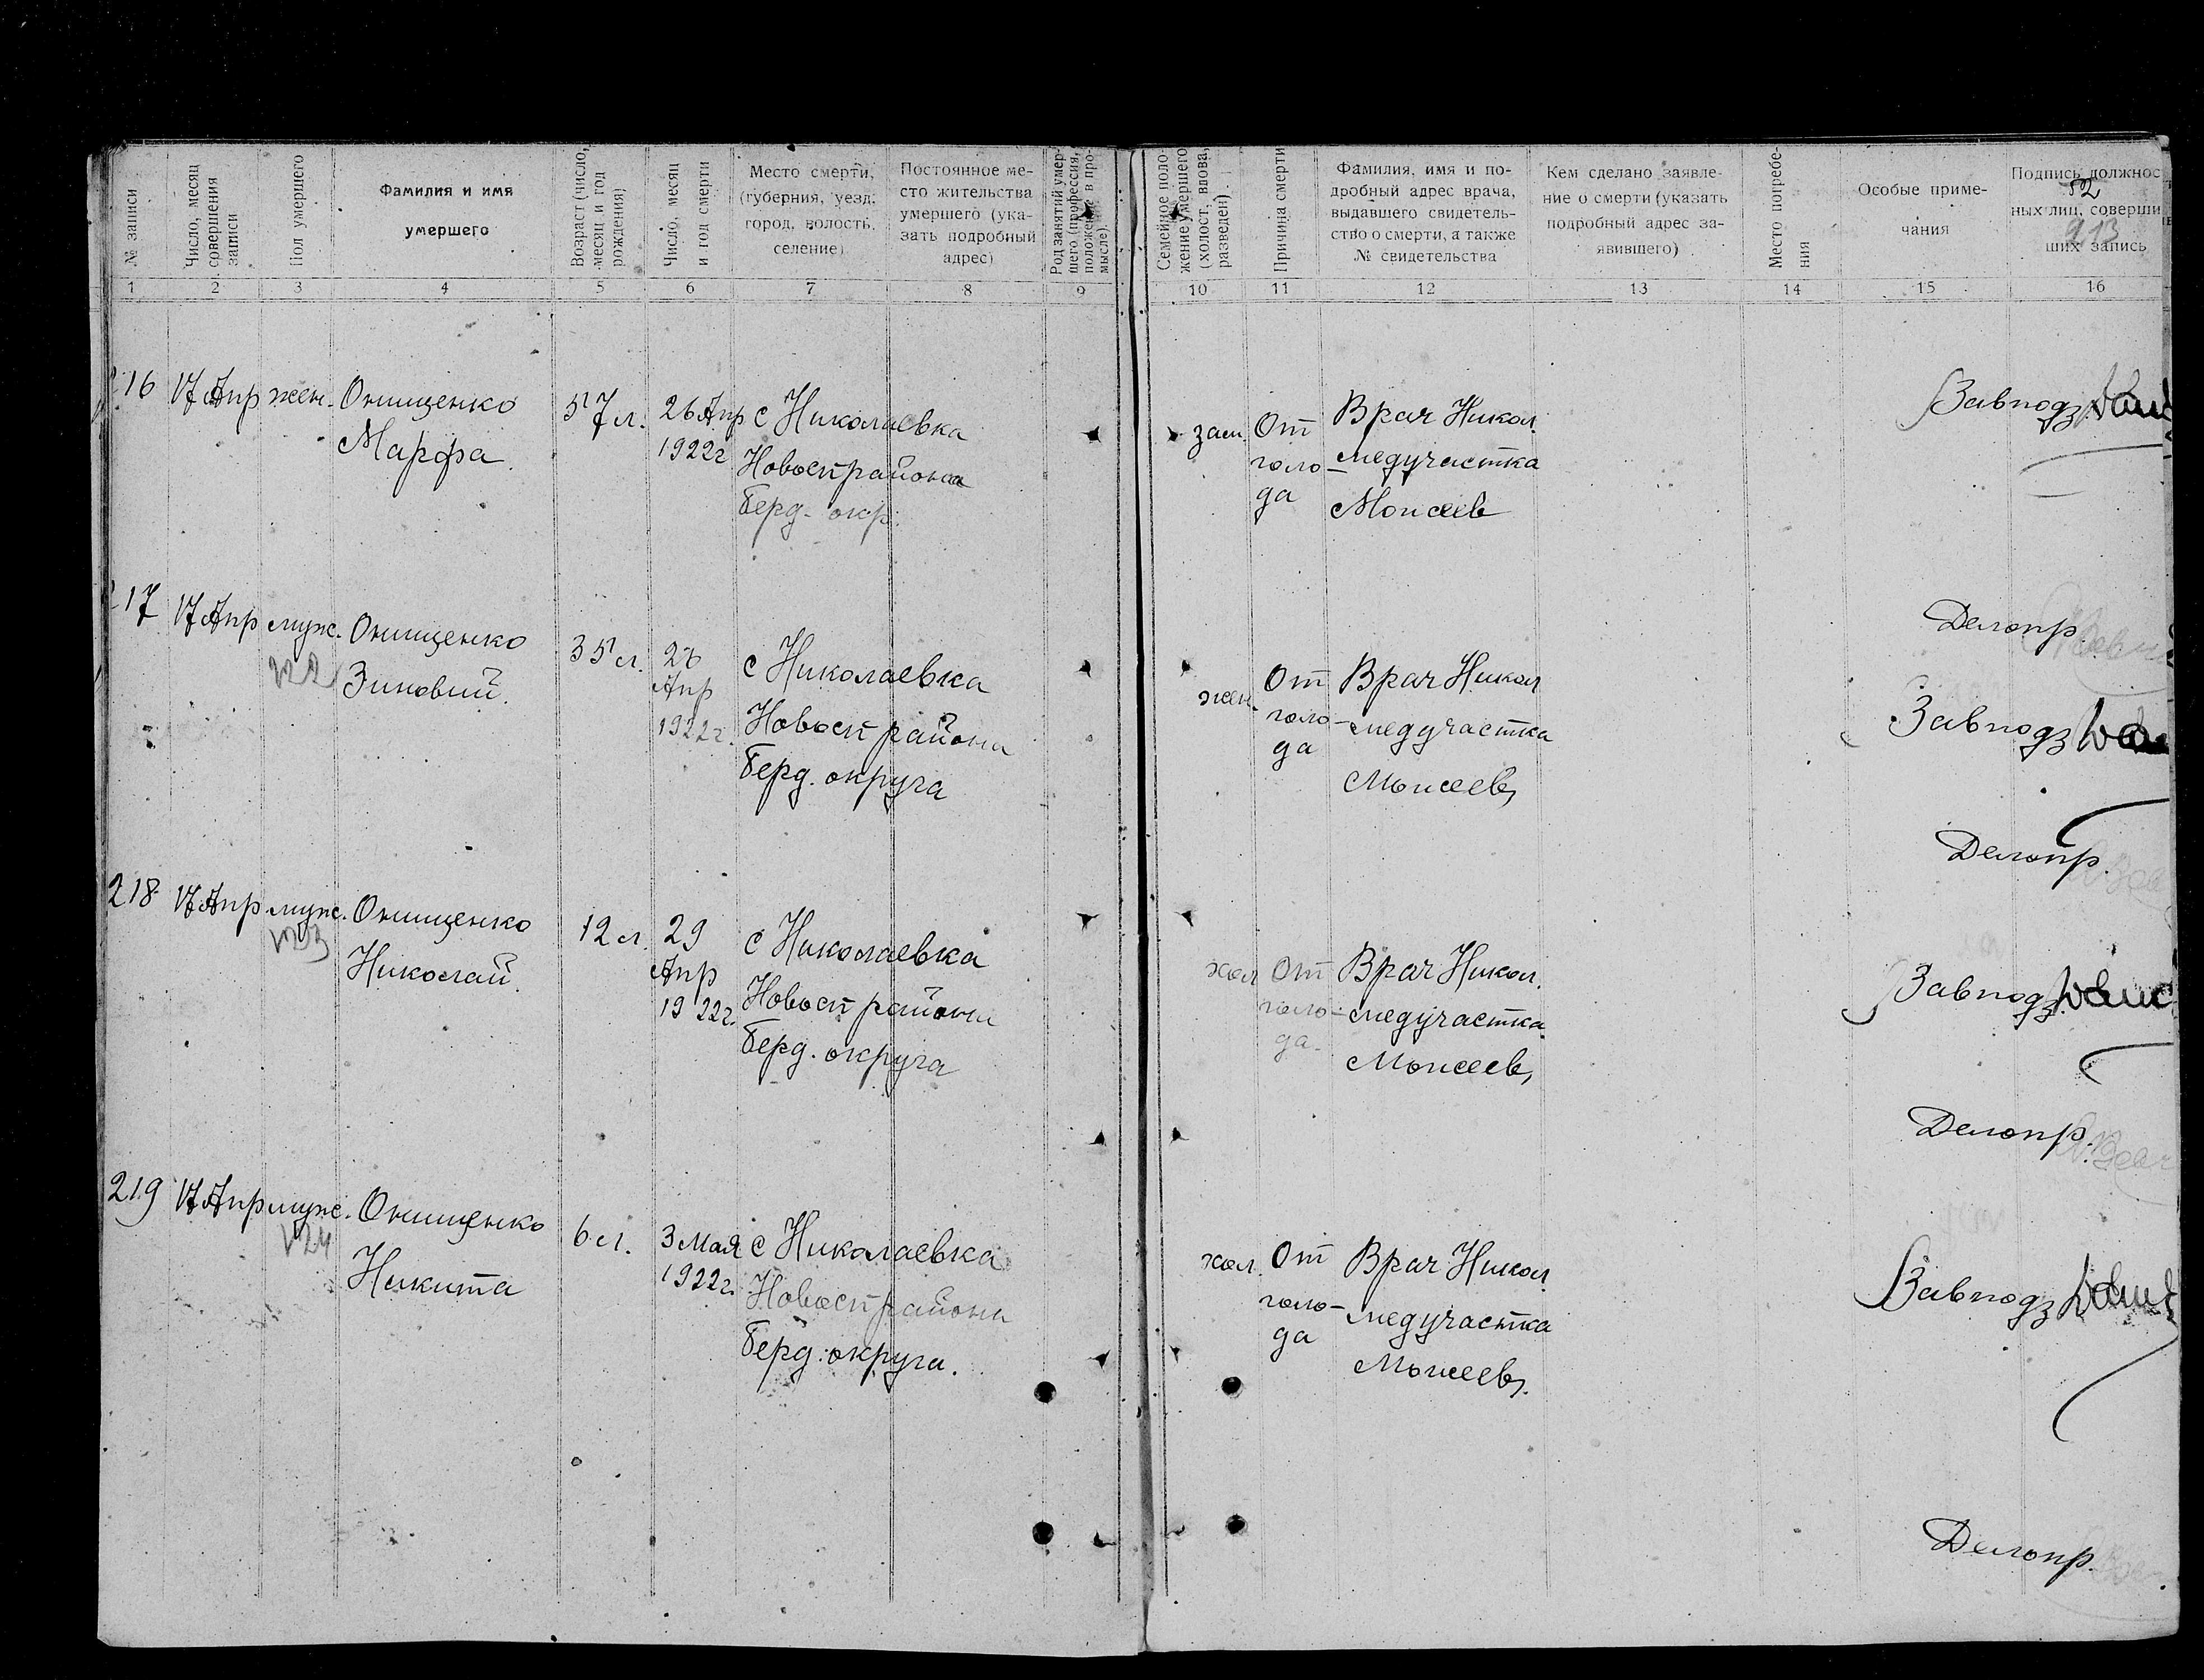 № записи
Число, месяц
совершения
записи
Пол умершего
Фамилия и имя
умершего
Возраст (число,
месяц и год
рождения)
Число, месяц
и год смерти
Место смерти,
(губерния, уезд,
город, волость,
селение)
Постоянное ме-
сто жительства
умершего (ука-
зать подробный
адрес)
Род занятий умер-
шего (профессия,
положение в про-
мысле).
Семейное поло-
жение умершего
(холост, вдова,
разведен)
Причина смерти
Фамилия, имя и по-
дробный адрес врача,
выдавшего свидетель-
ство о смерти, а также
№ свидетельства
Кем сделано заявле-
ние о смерти (указать
подробный адрес за-
явившего)
Место погребе-
ния
Особые приме-
чания
Подпись должнос
52
ных лиц, соверши
913
ших запись
1 2 3 4 5 6 7 8 9 10 11 12 13 14 15 16
216 17 Апр жен. Онищенко
Марфа
57 л. 26 Апр
1922 г
с Николаевка
Новосп района
Берд. окр.
зам. От
голо-
да
Врач Никол.
медучастка
Моисеев
Завподз
Делопр.
217 17 Апр муж. Онищенко
Зиновий.
35 л. 26
Апр
1922 г.
с Николаевка
Новосп района
Берд. округа
жен. От
голо-
да
Врач Никол
медучастка
Моисеев
Завподз
Делопр.
218 17 Апр муж. Онищенко
Николай.
12 л. 29
Апр
1922 г.
с Николаевка
Новосп района
Берд. округа
хол От
голо-
да.
Врач Никол.
медучастка
Моисеев
Завподз.
Делопр.
219 17 Апр муж. Онищенко
Никита
6 л. 3 Мая
1922 г.
с Николаевка
Новосп района
Берд. округа.
хол. От
голо-
да
Врач Никол
медучастка
Моисеев.
Завподз
Делопр.